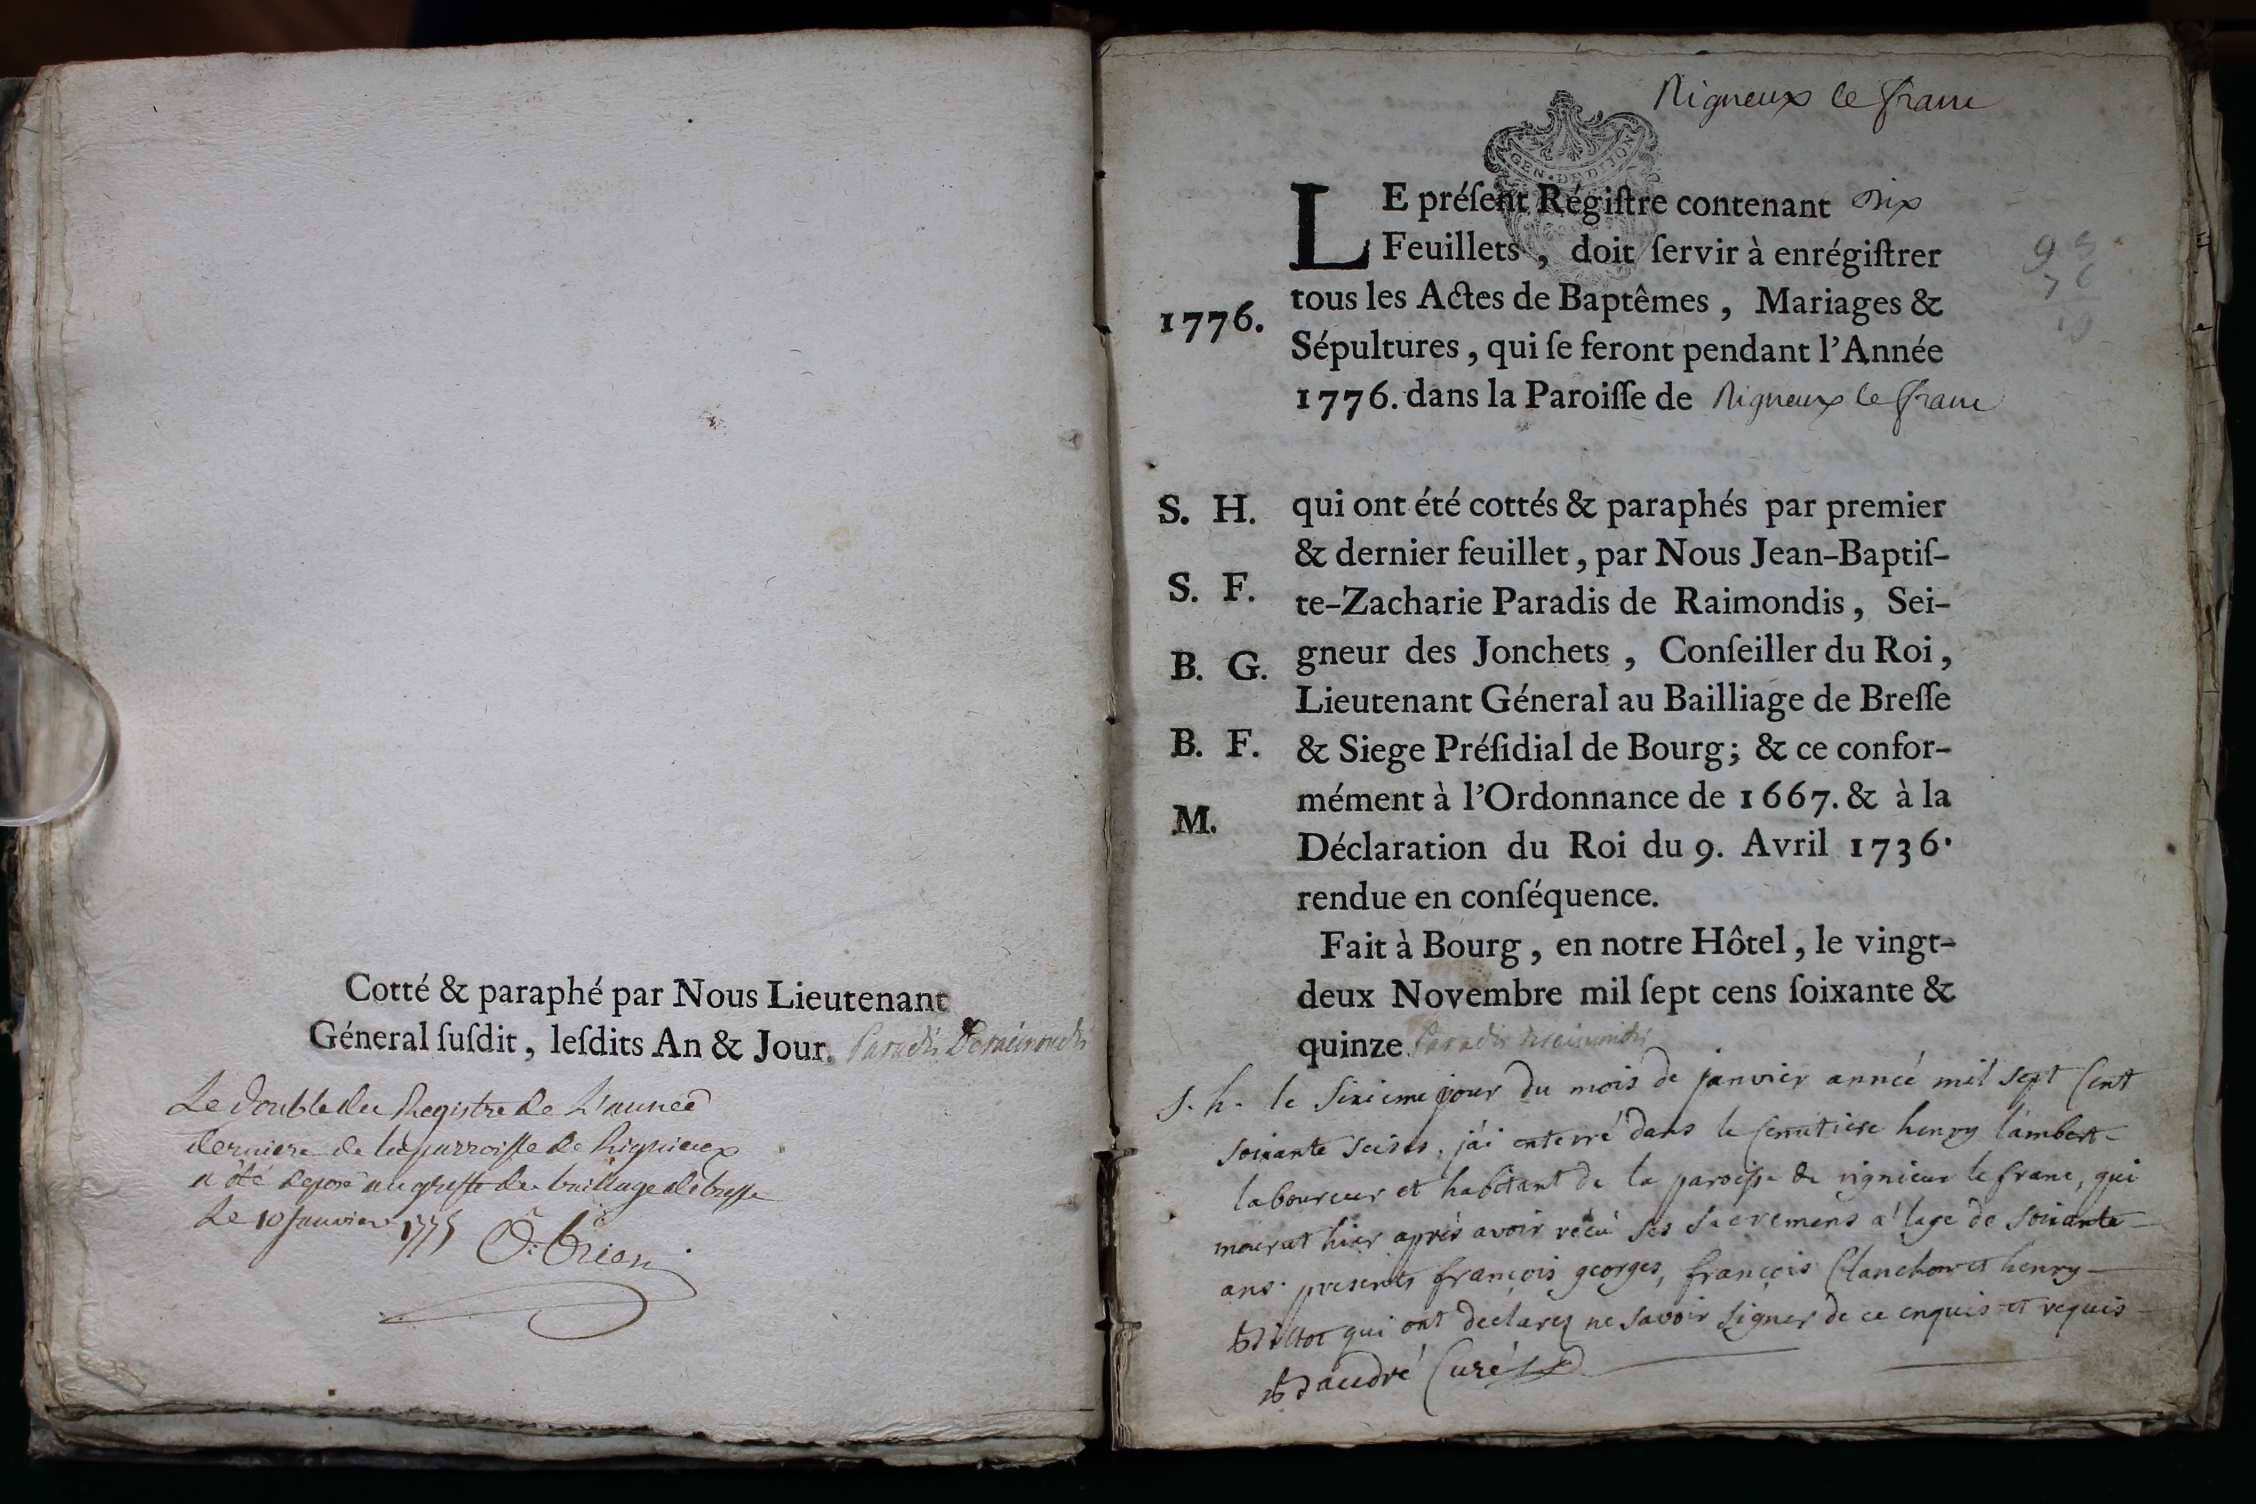 Cotté & paraphé par Nous Lieutenant
Géneral ſuſdit, leſdits An & Jour. Paradis Deraimondis
Le Double du Registre de L'année
derniere de la parroisse de Rignieux
a été deposé au greffe du bailliage de bresse
Le 10 Janvier 1775
Rigneux le franc
GEN. DE DIJON
LE préſent Régiſtre contenant Dix
Feuillets, doit ſervir à enrégiſtrer
tous les Actes de Baptêmes, Mariages &
1776.
Sépultures, qui ſe feront pendant l'Année
1776. dans la Paroiſſe de Rigneux le franc
S. H. qui ont été cottés & paraphés par premier
& dernier feuillet, par Nous Jean-Baptiſ-
S. F. te-Zacharie Paradis de Raimondis, Sei-
B. G. gneur des Jonchets, Conſeiller du Roi,
Lieutenant Géneral au Bailliage de Breſſe
B. F. & Siege Préſidial de Bourg; & ce confor-
mément à l'Ordonnance de 1667. & à la
M. Déclaration du Roi du 9. Avril 1736.
rendue en conſéquence.
Fait à Bourg, en notre Hôtel, le vingt-
deux Novembre mil ſept cens ſoixante &
quinze. Paradis Deraimondis
s. h. le sixieme jour du mois de janvier année mil sept cent
soixante seises, j'ai enterré dans le cemitiere henry lambert
laboureur et habitant de la paroisse de rignieux le franc, qui
mourut hier après avoir reçu ses sacremens a l'age de soixante
ans. presents françois georges, françois Clanchon et henry
qui ont déclarez ne savoir signer de ce enquis et requis
Baudré Curé